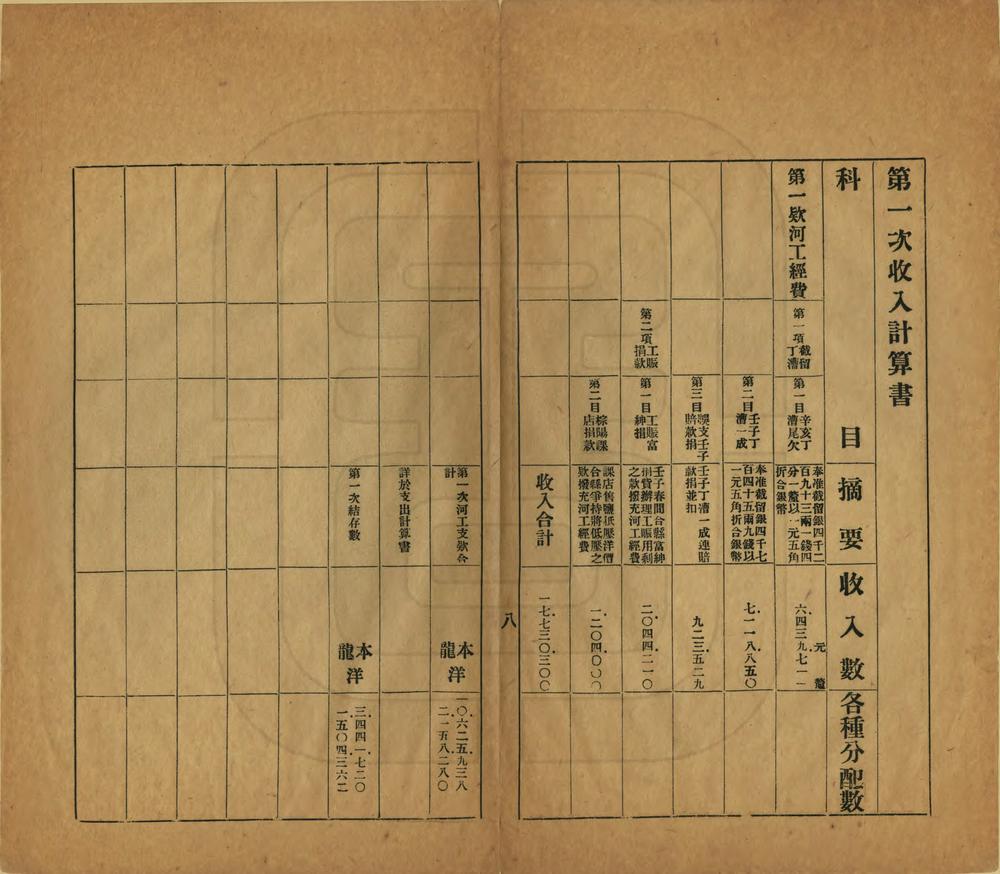 第一次收入計算書
科目
摘要
收入數
各種分配數
第一欵河工經費
第一項截留丁漕
第一目辛亥丁漕尾欠
奉准截留銀四千二百九十三兩一錢四分一釐以一元五角折合銀幣
元 釐
六.四三九.七一一
第二目壬子丁漕一成
奉准截留銀四千七百四十五兩九錢以一元五角折合銀幣
七.一一八.八五〇
第三目誤支壬子賠款捐
壬子丁漕一成連賠款捐並扣
九二三.五二九
第二項工賑捐款
第一目工賑富紳捐
壬子春間合縣富紳捐費辦理工賑用剩之款撥充河工經費
二.〇四四.二一〇
第二目棕陽課店捐款
課店售鹽低壓洋價合縣爭持將低壓之欵撥充河工經費
一.二〇四.〇〇〇
收入合計
一七.七三〇.三〇〇
八
第一次河工支欵合計
本洋
龍洋
一〇.六二五.九三八
二.一五八.二八〇
詳於支出計算書
第一次結存數
本洋
龍洋
三.四四一.七二〇
一.五〇四.三六二